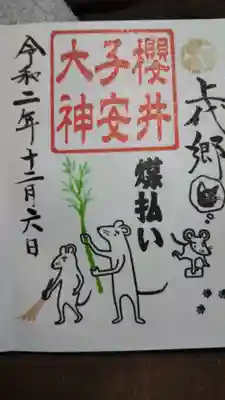 上代郷
櫻井
子安
大神
煤払い
令和二年十二月六日